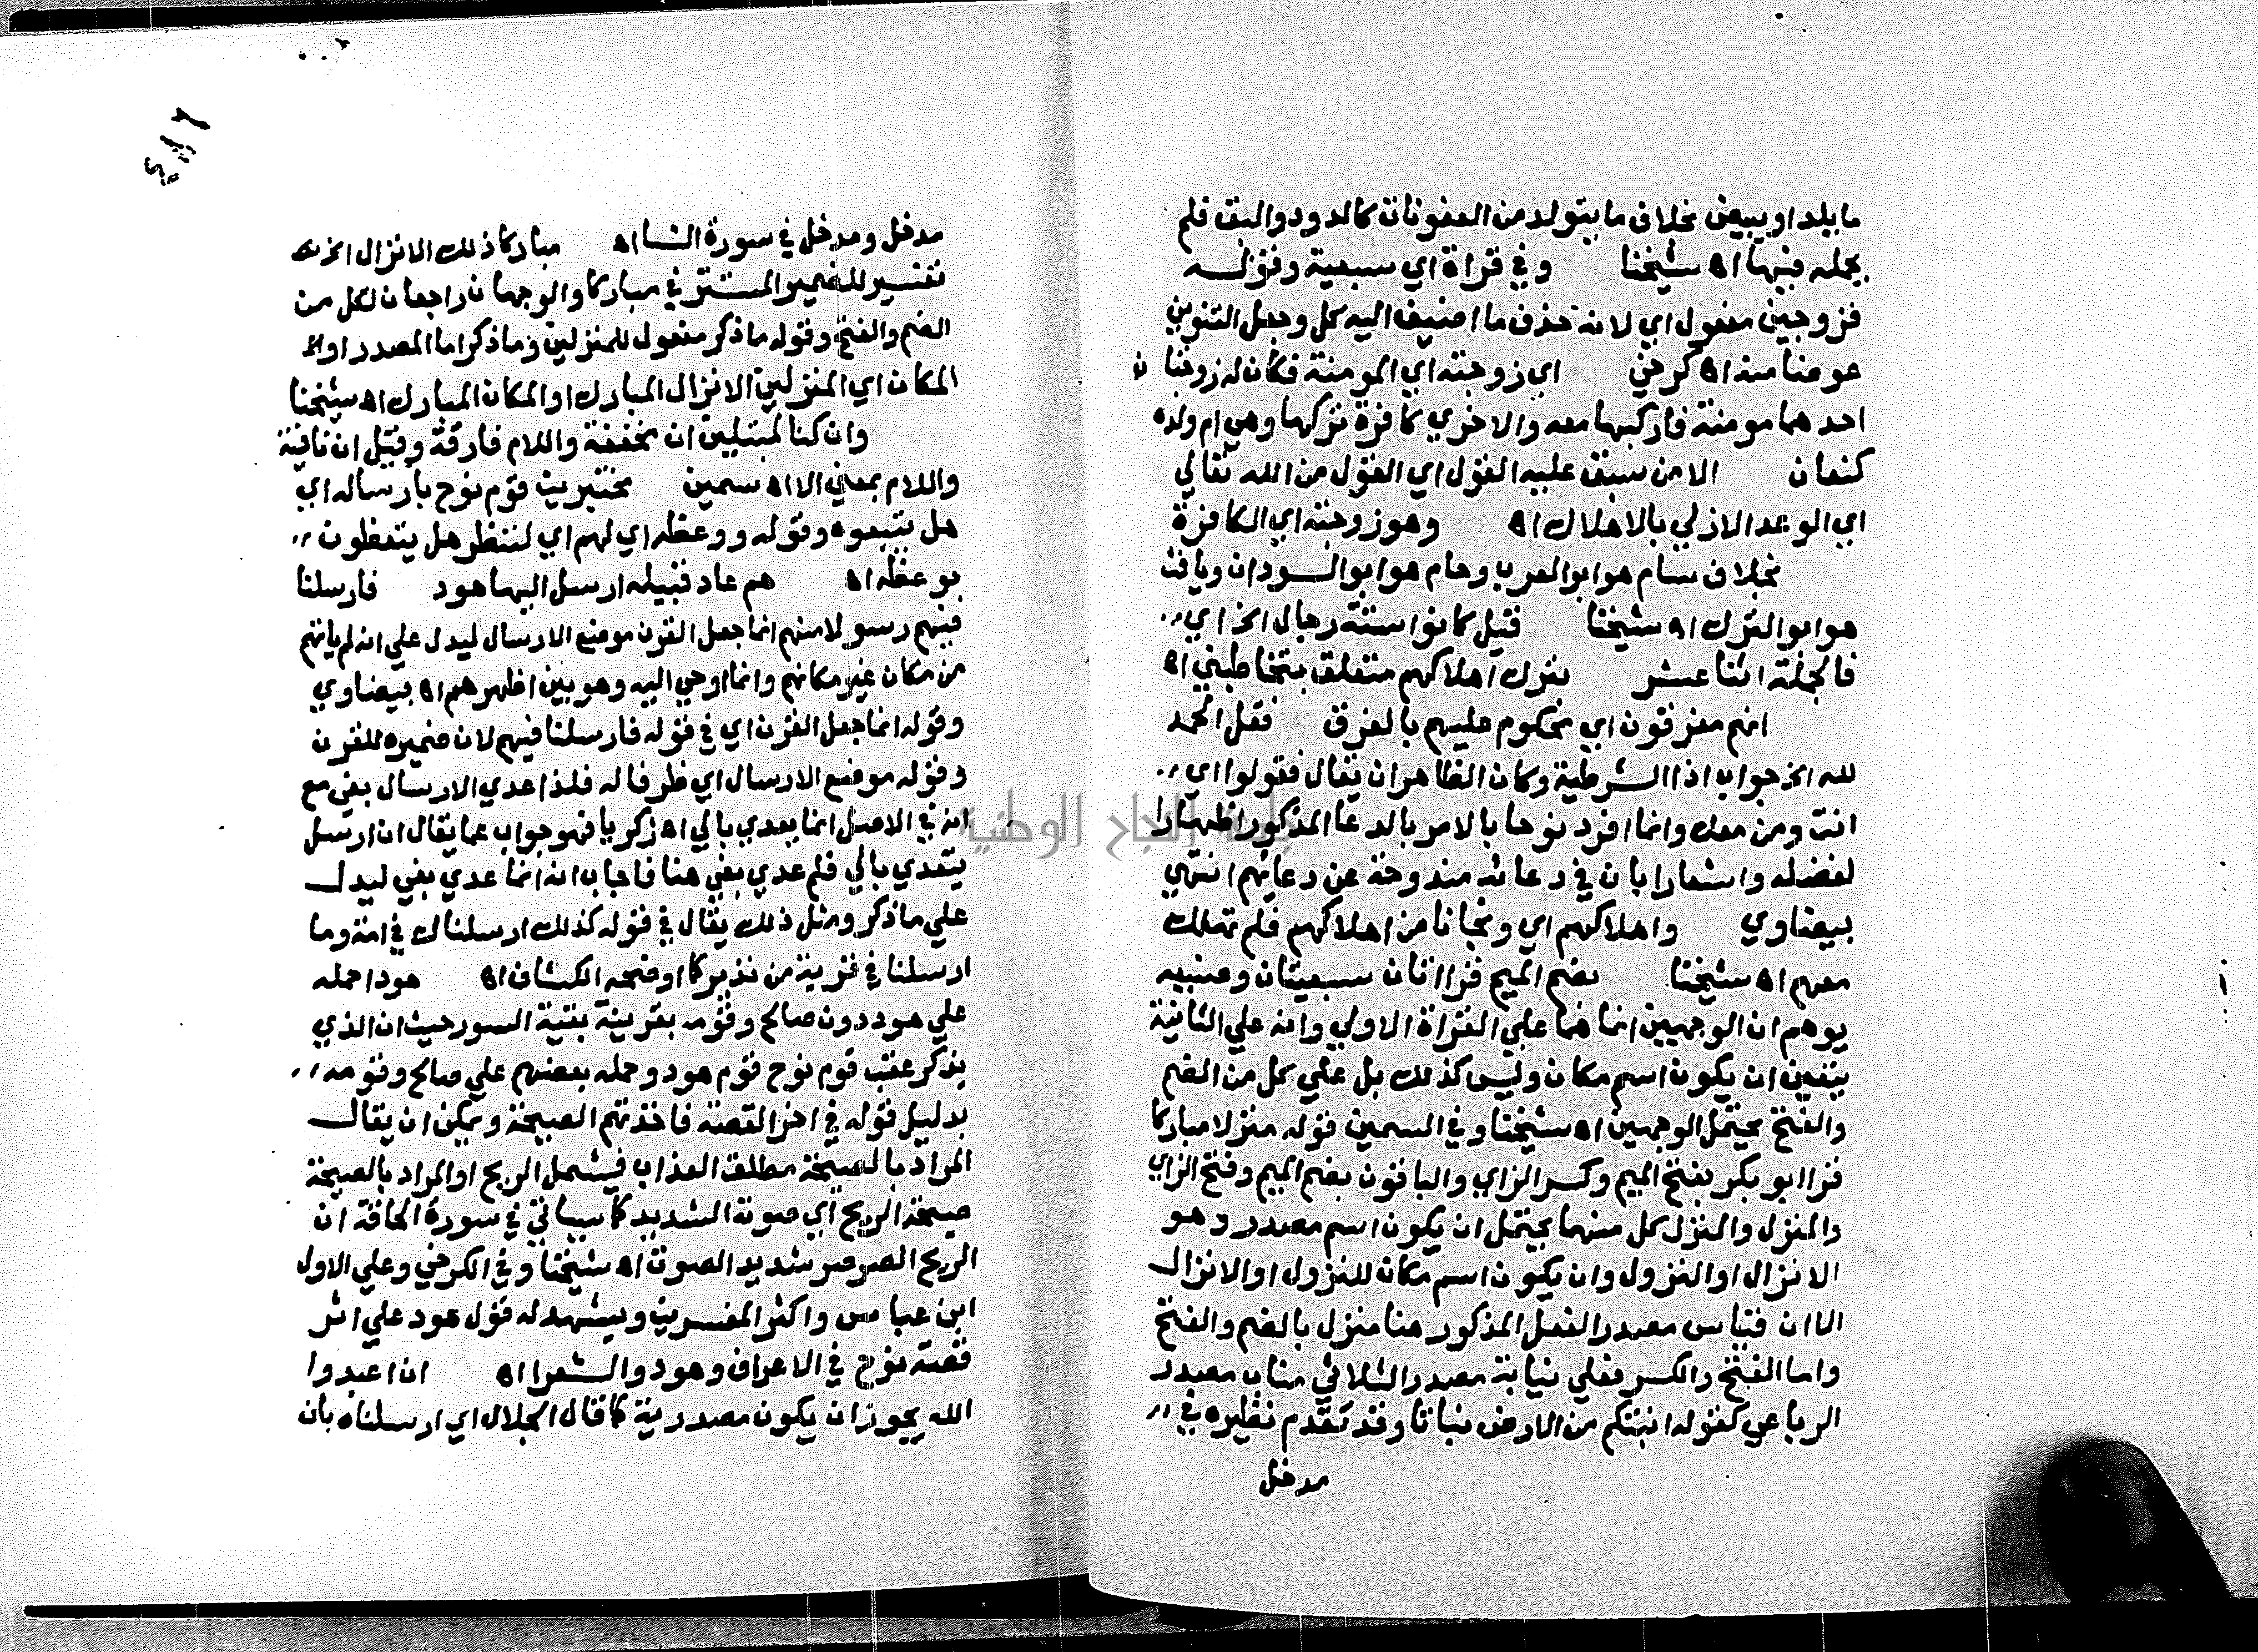 ما يلد او يبيض بخلاف ما يتولد من العفونات كالدود والبق فلم
يحمله فيها اه شيخنا وفي قراة اي سبعية وقوله
فزوجين مفعول اي لانه حذف ما اضيف اليه كل وجعل التنوين
عوضا منه اه كرخي اي زوجته اي المومنة فكان له زوجتان
احدهما مومنة فاركبها معه والاخري كافرة تركها وهي ام ولده
كنعان الا من سبق عليه القول اي القول من الله تعالي
اي الوعد الازلي بالاهلاك اه وهو زوجته اي الكافرة
بخلاف سام هو ابو العرب وحام هو ابو السودان ويافث
هو ابو الترك اه شيخنا قيل كانوا ستة رجال الخ اي
فالجملة اثنا عشر بترك اهلاكهم متعلق بتخاطبني اه
انهم مغرقون اي محكوم عليهم بالغرق فقل الحمد
لله الخ جواب اذا الشرطية وكان الظاهر ان يقال فقولوا اي
انت ومن معك وانما افرد نوحا بالامر بالدعا المذكور اظهارا
لفضله واشعارا بان في دعائه مندوحة عن دعائهم انتهي
بيضاوي واهلاكهم اي ونجانا من اهلاكهم فلم نهلك
معهم اه شيخنا بضم الميم قراتان سبعيتان وصنيعه
يوهم ان الوجهين انما هما علي القراة الاولي وانه علي الثانية
يتعين ان يكون اسم مكان وليس كذلك بل علي كل من الضم
والفتح يحتمل الوجهين اه شيخنا وفي السمين قوله منزلا مباركا
قرا ابو بكر بفتح الميم وكسر الزاي والباقون بضم الميم وفتح الزاي
والمنزل والمنزل كل منهما يحتمل ان يكون اسم مصدر وهو
الانزال او النزول وان يكون اسم مكان للنزول او الانزال
الا ان قياس مصدر الفعل المذكور هنا منزل بالضم والفتح
واما الفتح والكسر فعلي نيابة مصدر الثلاثي مناب مصدر
الرباعي كقوله انبتكم من الارض نباتا وقد تقدم نظيره في
مدخل
مدخل ومدخل في سورة النسا اه مباركا ذلك الانزال الخ
تفسير للضمير المستتر في مباركا والوجهان راجعان لكل من
الضم والفتح وقوله ما ذكر مفعول للمنزلين وما ذكر اما المصدر اولا
المكان اي المنزلين الانزال المبارك او المكان المبارك اه شيخنا
وان كنا لمبتلين ان مخففة واللام فارقة وقيل ان نافية
واللام بمعني الا اه سمين مختبرين قوم نوح بارساله اي
هل يتبعوه وقوله ووعظه اي لهم اي لننظر هل يتعظون
بوعظه اه هم عاد قبيله ارسل اليها هود فارسلنا
فيهم رسولا منهم انما جعل القرن موضع الارسال ليدل علي انه لم ياتهم
من مكان غير مكانهم وانما اوحي اليه وهو بين اظهرهم اه بيضاوي
وقوله انما جعل القرن اي في قوله فارسلنا فيهم لان ضميره للقرن
وقوله موضع الارسال اي ظرفا له فلذا عدي الارسال بفي مع
انه في الاصل انما يعدي بالي اه زكريا فهو جواب عما يقال ان ارسل
يتعدي بالي فلم عدي بفي هنا فاجاب انه انما عدي بفي ليدل
علي ما ذكر ومثل ذلك يقال في قوله كذلك ارسلناك في امة وما
ارسلنا في قرية من نذير كما اوضحه الكشاف اه هودا حمله
علي هود دون صالح وقومه بقرينة بقية السور حيث ان الذي
يذكر عقب قوم نوح قوم هود وحمله بعضهم علي صالح وقومه
بدليل قوله في اخر القصة فاخذتهم الصيحة ويمكن ان يقال
المراد بالصيحة مطلق العذاب فيشمل الريح او المراد بالصيحة
صيحة الريح اي صوته الشديد كما سياتي في سورة الحاقة ان
الريح الصرصر شديد الصوت اه شيخنا وفي الكرخي وعلي الاول
ابن عباس واكثر المفسرين ويشهد له قول هود علي اثر
قصة نوح في الاعراف وهود والشعرا اه ان اعبدوا
الله يجوز ان يكون مصدرية كما قال الجلال اي ارسلناه بان